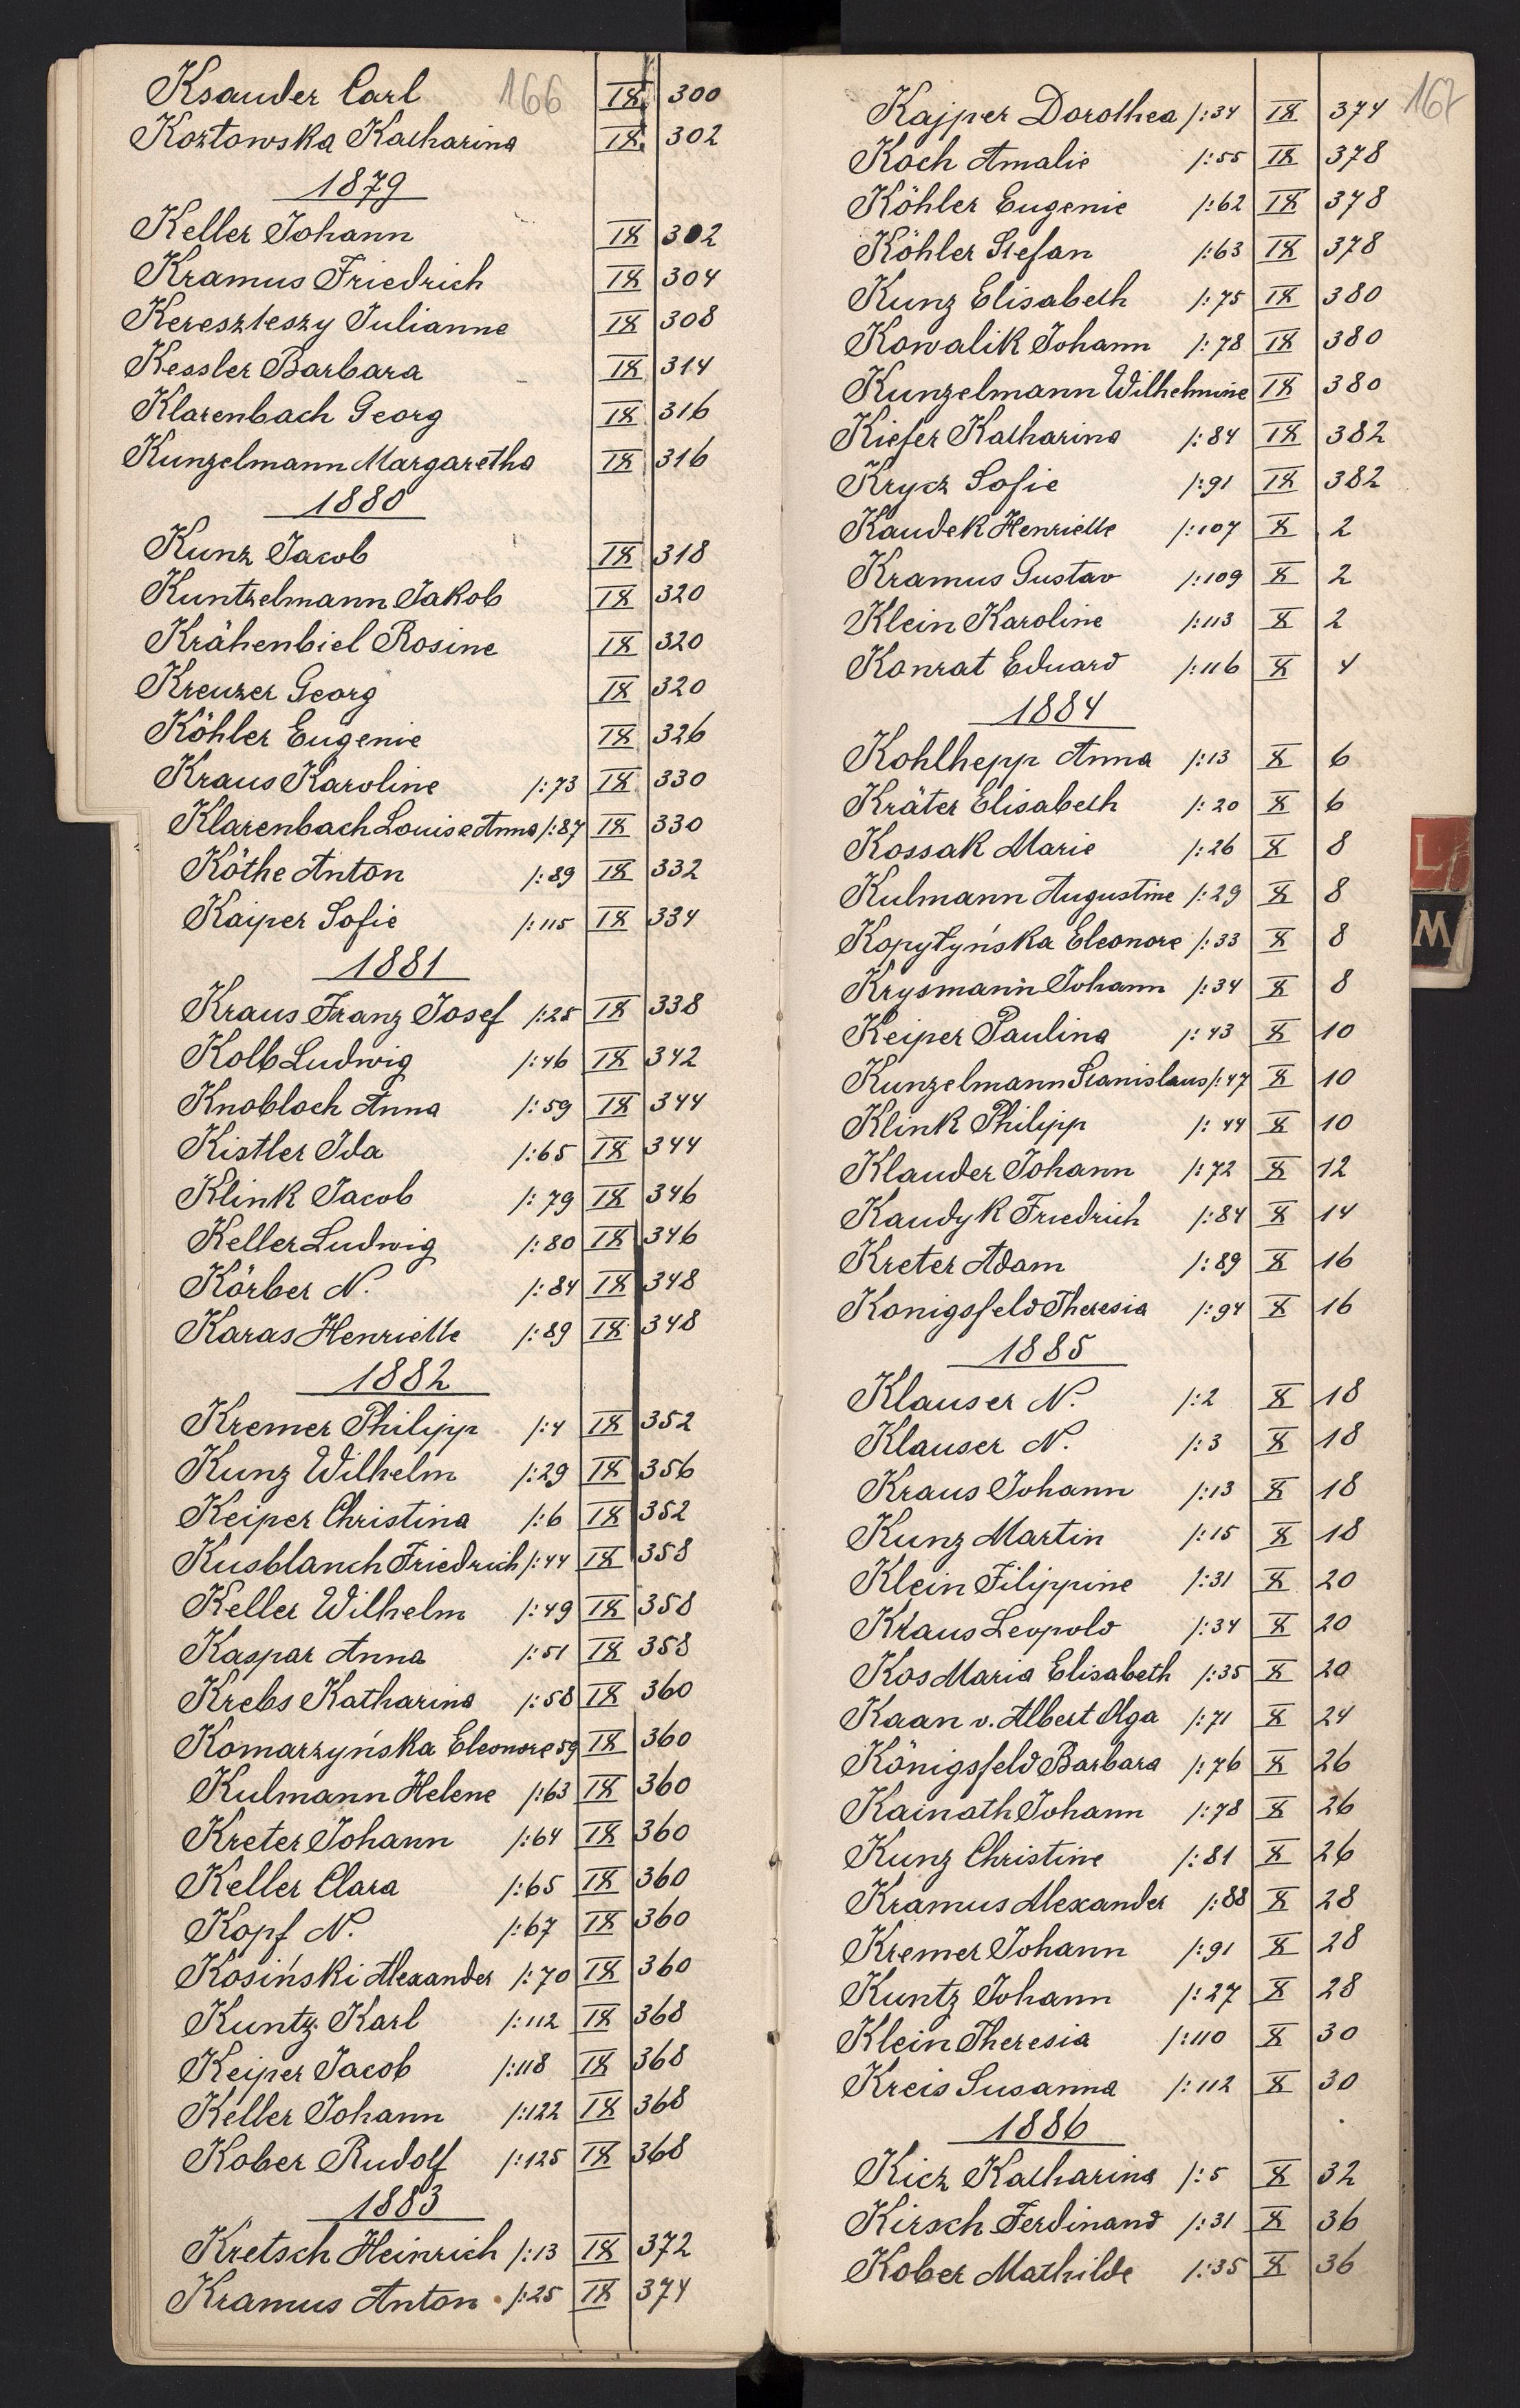 Ksander Carl 166 IX 300
Kozłowska Katharina IX 302
1879
Keller Johann IX 302
Kramus Friedrich IX 304
Kereszteszy Julianne IX 308
Kessler Barbara IX 314
Klarenbach Georg IX 316
Kunzelmann Margaretha IX 316
1880
Kunz Jacob IX 318
Kuntzelmann Jakob IX 320
Krähenbiel Rosine IX 320
Kreuzer Georg IX 320
Köhler Eugenie IX 326
Kraus Karoline /:73 IX 330
Klarenbach Louise Anna /:87 IX 330
Köthe Anton /:89 IX 332
Kaiper Sofie /:115 IX 334
1881
Kraus Franz Josef /:25 IX 338
Kolb Ludwig /:46 IX 342
Knobloch Anna /:59 IX 344
Kistler Ida /:65 IX 344
Klink Jacob /:79 IX 346
Keller Ludwig /:80 IX 346
Körber N. /:84 IX 348
Karas Henriette /:89 IX 348
1882
Kremer Philipp /:4 IX 352
Kunz Wilhelm /:29 IX 356
Keiper Christina /:6 IX 352
Kusblanch Friedrich /:44 IX 358
Keller Wilhelm /:49 IX 358
Kaspar Anna /:51 IX 358
Krebs Katharina /:58 IX 360
Komarzyńska Eleonore 59 IX 360
Kulmann Helene /:63 IX 360
Kreter Johann /:64 IX 360
Keller Clara /:65 IX 360
Kopf N. /:67 IX 360
Kosiński Alexander /:70 IX 360
Kuntz Karl /:112 IX 368
Keiper Jacob /:118 IX 368
Keller Johann /:122 IX 368
Kober Rudolf /:125 IX 368
1883
Kretsch Heinrich /:13 IX 372
Kramus Anton /:25 IX 374
Kajper Dorothea /:34 IX 374 167
Koch Amalie /:55 IX 378
Köhler Eugenie /:62 IX 378
Köhler Stefan /:63 IX 378
Kunz Elisabeth /:75 IX 380
Kowalik Johann /:78 IX 380
Kunzelmann Wilhelmine IX 380
Kiefer Katharina /:84 IX 382
Krycz Sofie /:91 IX 382
Kaudek Henriette /:107 X 2
Kramus Gustav /:109 X 2
Klein Karoline /:113 X 2
Konrat Eduard /:116 X 4
1884
Kohlhepp Anna /:13 X 6
Kräter Elisabeth /:20 X 6
Kossak Marie /:26 X 8
Kulmann Augustine /:29 X 8
Kopytyńska Eleonore /:33 X 8
Krysmann Johann /:34 X 8
Keiper Paulina /:43 X 10
Kunzelmann Stanislaus /:47 X 10
Klink Philipp /:44 X 10
Klauder Johann /:72 X 12
Kaudyk Friedrich /:84 X 14
Kreter Adam /:89 X 16
Konigsfeld Theresia /:94 X 16
1885
Klauser N. /:2 X 18
Klauser N. /:3 X 18
Kraus Johann /:13 X 18
Kunz Martin /:15 X 18
Klein Filippine /:31 X 20
Kraus Leopold /:34 X 20
Kos Maria Elisabeth /:35 X 20
Kaan v. Albert Olga /:71 X 24
Königsfeld Barbara /:76 X 26
Kainath Johann /:78 X 26
Kunz Christine /:81 X 26
Kramus Alexander /:88 X 28
Kremer Johann /:91 X 28
Kuntz Johann /:27 X 28
Klein Theresia /:110 X 30
Kreis Susanna /:112 X 30
1886
Kicz Katharina /:5 X 32
Kirsch Ferdinand /:31 X 36
Kober Mathilde /:35 X 36
L
M